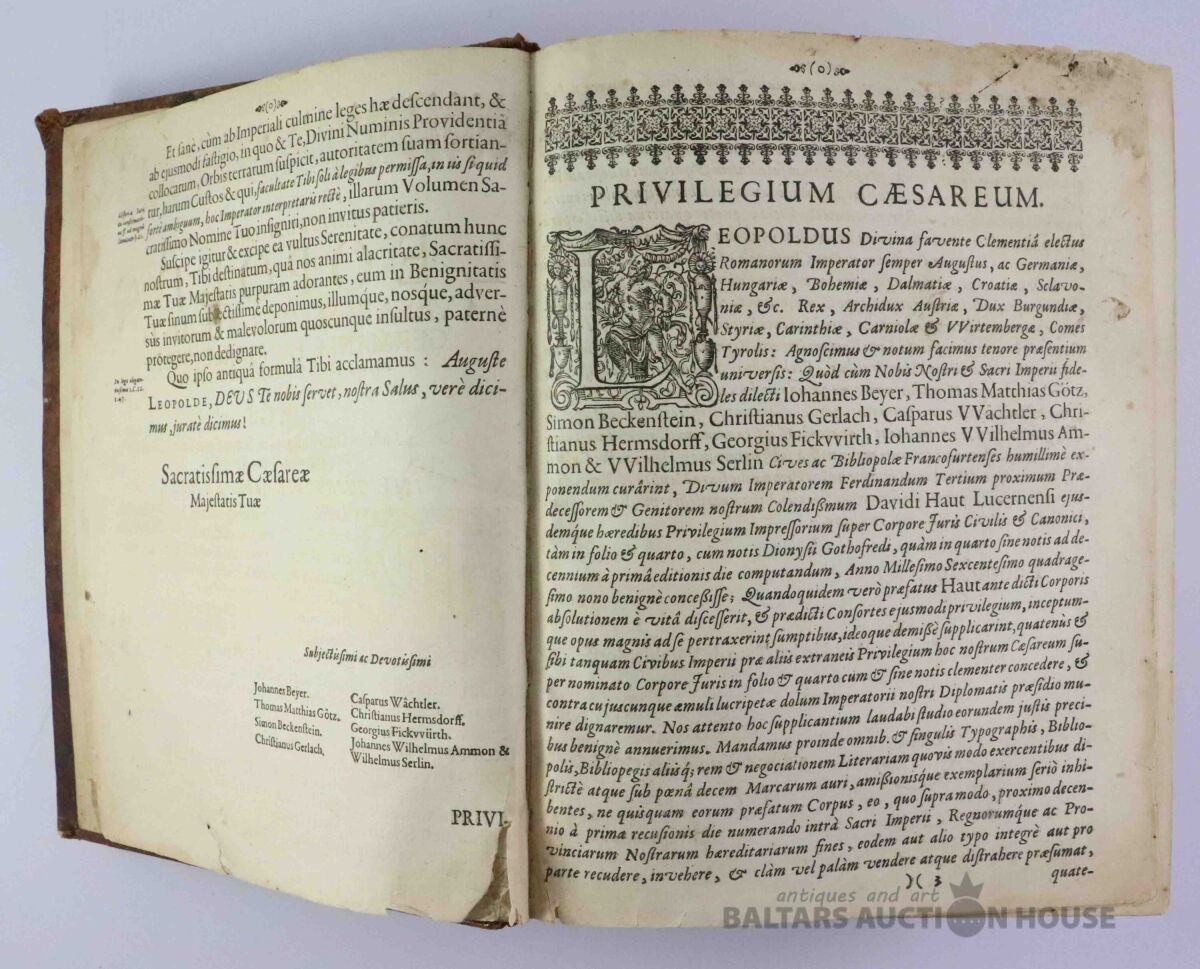 (0)
Et sanè, cùm ab Imperiali culmine leges hæ descendant, &
ab ejusmodi fastigio, in quo & Te, Divini Numinis Providentiâ
collocatum, Orbis terrarum suspicit, autoritatem suam sortian-
tur, harum Custos & qui, facultate Tibi soli à legibus permissa, in iis si quid
fortè ambiguum, hoc Imperator interpretaris rectè, illarum Volumen Sa-
cratissimo Nomine Tuo insigniri, non invitus patieris.
Suscipe igitur & excipe ea vultus Serenitate, conatum hunc
nostrum, Tibi destinatum, quâ nos animi alacritate, Sacratissi-
mæ Tuæ Majestatis purpuram adorantes, eum in Benignitatis
Tuæ sinum subjectissime deponimus, illumque, nosque, adver-
sùs invitorum & malevolorum quoscunque insultus, paternè
prôtegere, non dedignare.
Quo ipso antiquâ formulâ Tibi acclamamus : Auguste
LEOPOLDE, DEUS Te nobis servet, nostra Salus, verè dici-
mus, juratè dicimus!
Sacratissimæ Cæsareæ
Majestatis Tuæ
Subjectissimi ac Devotissimi
Johannes Beyer.
Thomas Matthias Götz.
Simon Beckenstein.
Christianus Gerlach.
Casparus Wächtler.
Christianus Hermsdorff.
Georgius Fickvvürth.
Johannes Wilhelmus Ammon &
Wilhelmus Serlin.
PRIVI-
(0)
PRIVILEGIUM CÆSAREUM.
LEOPOLDUS Divina favente Clementiâ electus
Romanorum Imperator semper Augustus, ac Germaniæ,
Hungariæ, Bohemiæ, Dalmatiæ, Croatiæ, Sclavo-
niæ, &c. Rex, Archidux Austriæ, Dux Burgundiæ,
Styriæ, Carinthiæ, Carniolæ & VVirtembergæ, Comes
Tyrolis: Agnoscimus & notum facimus tenore præsentium
universis: Quòd cùm Nobis Nostri & Sacri Imperii fide-
les dilecti Iohannes Beyer, Thomas Matthias Götz,
Simon Beckenstein, Christianus Gerlach, Casparus VVächtler, Chri-
stianus Hermsdorff, Georgius Fickvvirth, Iohannes VVilhelmus Am-
mon & VVilhelmus Serlin Cives ac Bibliopolæ Francofurtenses humillimè ex-
ponendum curârint, Divum Imperatorem Ferdinandum Tertium proximum Præ-
decessorem & Genitorem nostrum Colendissimum Davidi Haut Lucernensi ejus-
demque hæredibus Privilegium Impressorium super Corpore Juris Civilis & Canonici,
tàm in folio & quarto, cum notis Dionysii Gothofredi, quàm in quarto sine notis ad de-
cennium à primâ editionis die computandum, Anno Millesimo Sexcentesimo quadrage-
simo nono benignè concessisse; Quandoquidem verò præfatus Haut ante dicti Corporis
absolutionem è vitâ discesserit, & prædicti Consortes ejusmodi privilegium, inceptum-
que opus magnis ad se pertraxerint sumptibus, ideoque demissè supplicarint, quatenùs &
sibi tanquam Civibus Imperii præ aliis extraneis Privilegium hoc nostrum Cæsareum su-
per nominato Corpore Juris in folio & quarto cum & sine notis clementer concedere, &
contra cujuscunque æmuli lucripetæ dolum Imperatorii nostri Diplomatis præsidio mu-
nire dignaremur. Nos attento hoc supplicantium laudabi studio eorundem justis preci-
bus benignè annuerimus. Mandamus proinde omnib. & singulis Typographis, Biblio-
polis, Bibliopegis aliisq; rem & negociationem Literariam quovis modo exercentibus di-
strictè atque sub pœnâ decem Marcarum auri, amissionisque exemplarium seriò inhi-
bentes, ne quisquam eorum præfatum Corpus, eo, quo supra modo, proximo decen-
nio à prima recusionis die numerando intrà Sacri Imperii, Regnorumque ac Pro-
vinciarum Nostrarum hæreditariarum fines, eodem aut alio typo integrè aut pro
parte recudere, invehere, & clàm vel palàm vendere atque distrahere præsumat,
)( 3
quate-
antiques and art
BALTARS AUCTION HOUSE